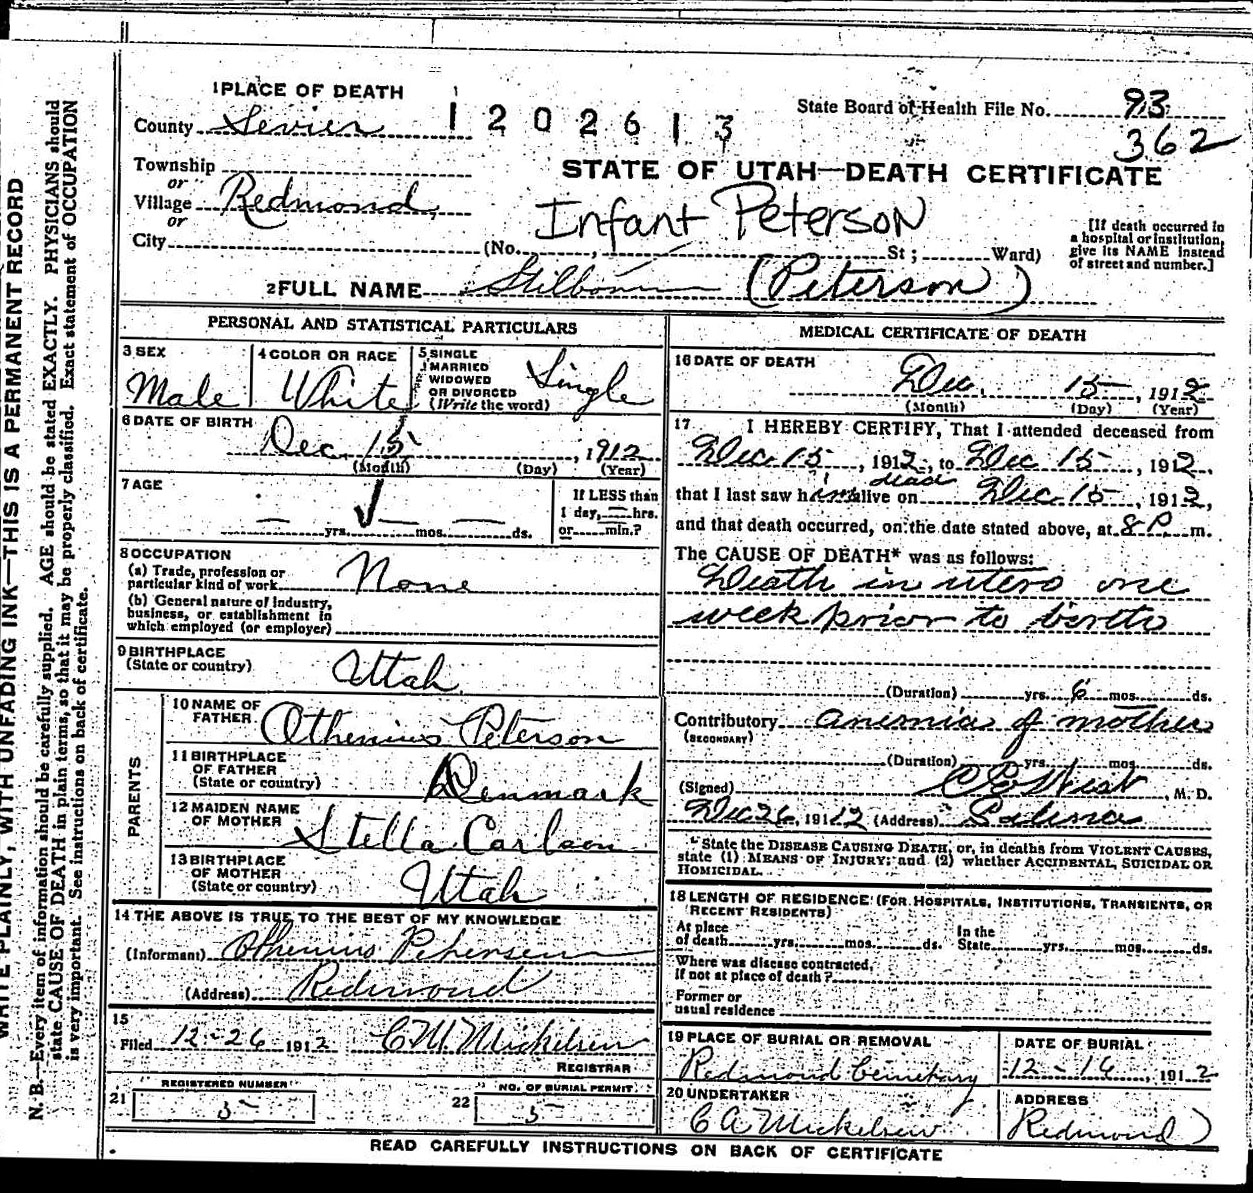 1 PLACE OF DEATH
County Sevier
1202613
State Board of Health File No. 93
362
Township
or
Village Redmond
or
City
STATE OF UTAH—DEATH CERTIFICATE
Infant Peterson
(No. , St ; Ward)
[If death occurred in
a hospital or institution,
give its NAME instead
of street and number.]
2 FULL NAME Stilborn (Peterson)
PERSONAL AND STATISTICAL PARTICULARS
3 SEX
Male
4 COLOR OR RACE
White
5 SINGLE
MARRIED
WIDOWED
OR DIVORCED
(Write the word)
Single
6 DATE OF BIRTH
Dec. 15 , 1912
(Month) (Day) (Year)
7 AGE
— yrs. — mos. — ds.
If LESS than
1 day, — hrs.
or — min.?
8 OCCUPATION
(a) Trade, profession or
particular kind of work
None
(b) General nature of industry,
business, or establishment in
which employed (or employer)
9 BIRTHPLACE
(State or country)
Utah
PARENTS
10 NAME OF
FATHER
Othenius Peterson
11 BIRTHPLACE
OF FATHER
(State or country)
Denmark
12 MAIDEN NAME
OF MOTHER
Stella Carlson
13 BIRTHPLACE
OF MOTHER
(State or country)
Utah
14 THE ABOVE IS TRUE TO THE BEST OF MY KNOWLEDGE
(Informant) Othenius Petersen
(Address) Redmond
15
Filed 12-26 1912 C M Mickelsen
REGISTRAR
21 REGISTERED NUMBER
5
22 NO. OF BURIAL PERMIT
5
MEDICAL CERTIFICATE OF DEATH
16 DATE OF DEATH
Dec. 15 , 1912
(Month) (Day) (Year)
17 I HEREBY CERTIFY, That I attended deceased from
Dec. 15 , 1912, to Dec 15 , 1912,
dead
that I last saw him alive on Dec. 15 , 1912,
and that death occurred, on the date stated above, at 8 P. m.
The CAUSE OF DEATH* was as follows:
Death in utero one
week prior to birth
(Duration) yrs. 6 mos. ds.
Contributory anemia of mother
(SECONDARY)
(Duration) yrs. mos. ds.
(Signed) West , M. D.
Dec 26, 1912 (Address) Salina
*State the DISEASE CAUSING DEATH, or, in deaths from VIOLENT CAUSES,
state (1) MEANS OF INJURY; and (2) whether ACCIDENTAL, SUICIDAL OR
HOMICIDAL.
18 LENGTH OF RESIDENCE (FOR HOSPITALS, INSTITUTIONS, TRANSIENTS, OR
RECENT RESIDENTS)
At place
of death yrs. mos. ds.
In the
State yrs. mos. ds.
Where was disease contracted,
if not at place of death?
Former or
usual residence
19 PLACE OF BURIAL OR REMOVAL
Redmond Cemetary
DATE OF BURIAL
12-16 , 1912
20 UNDERTAKER
C A Mickelsen
ADDRESS
Redmond
READ CAREFULLY INSTRUCTIONS ON BACK OF CERTIFICATE
WRITE PLAINLY, WITH UNFADING INK—THIS IS A PERMANENT RECORD
N. B.—Every item of information should be carefully supplied. AGE should be stated EXACTLY. PHYSICIANS should
state CAUSE OF DEATH in plain terms, so that it may be properly classified. Exact statement of OCCUPATION
is very important. See instructions on back of certificate.